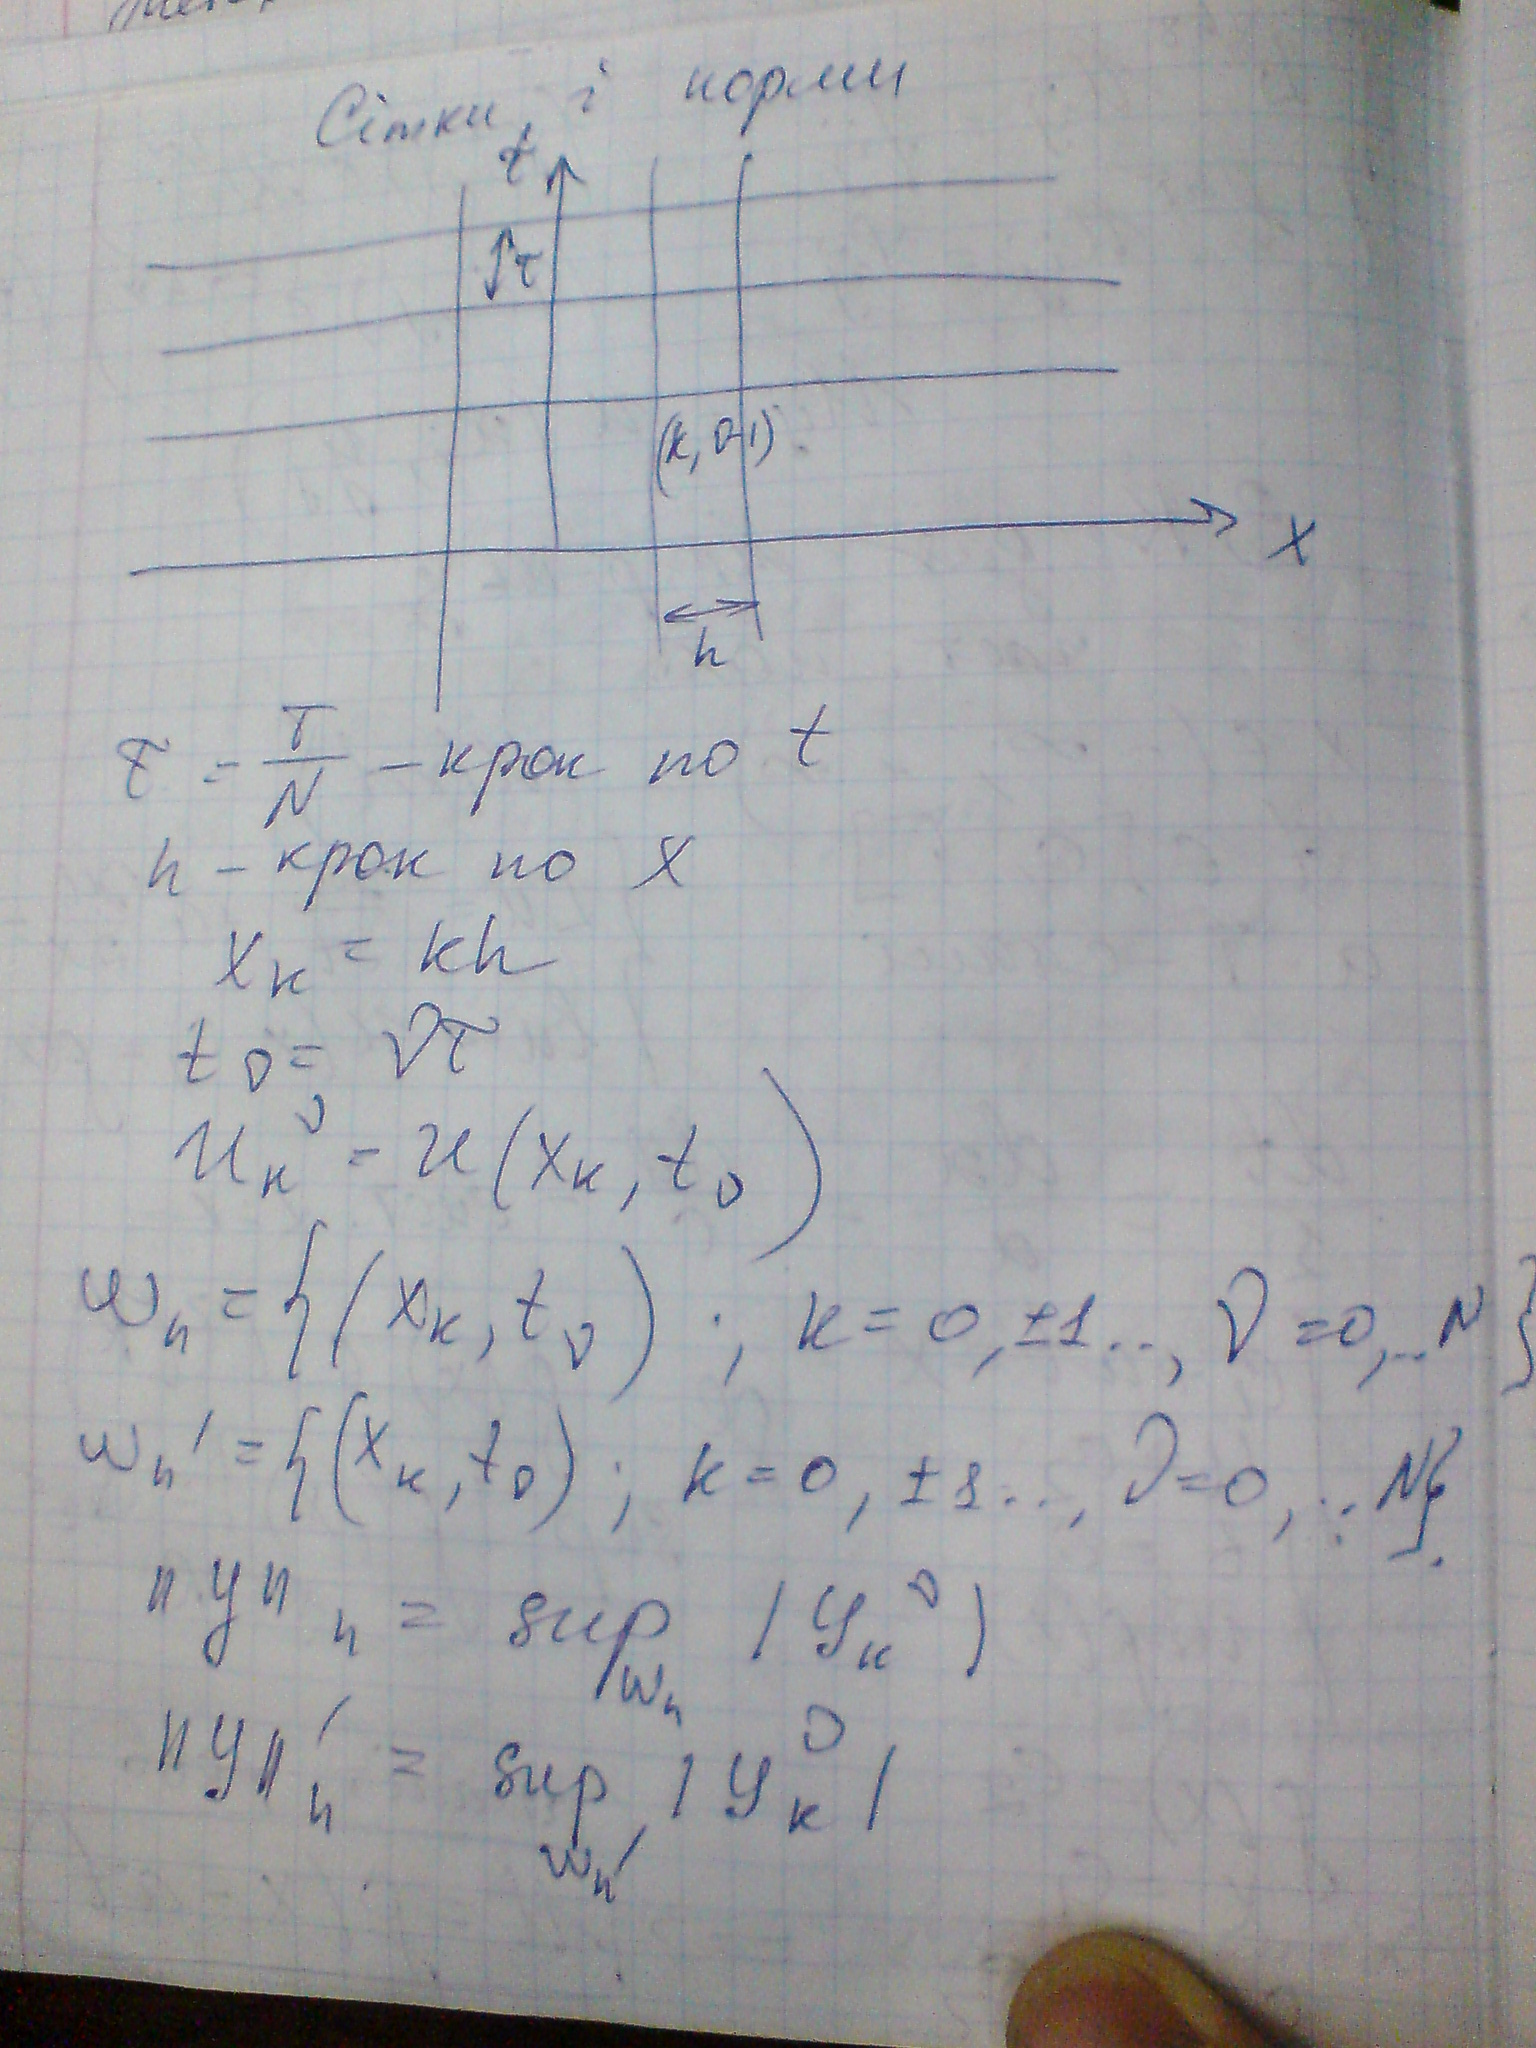 Сітки і норми
t
τ
(k, ν-1)
x
h
τ = T/N - крок по t
h - крок по x
x_k = kh
t_ν = ντ
u_k^ν = u(x_k, t_ν)
ω_h = {(x_k, t_ν); k = 0, ±1..., ν = 0,..N}
ω_h' = {(x_k, t_ν); k = 0, ±1..., ν = 0,...N}.
"y"_h = sup_{ω_h} |y_k^ν|
"y"_h' = sup_{ω_h'} |y_k^ν|